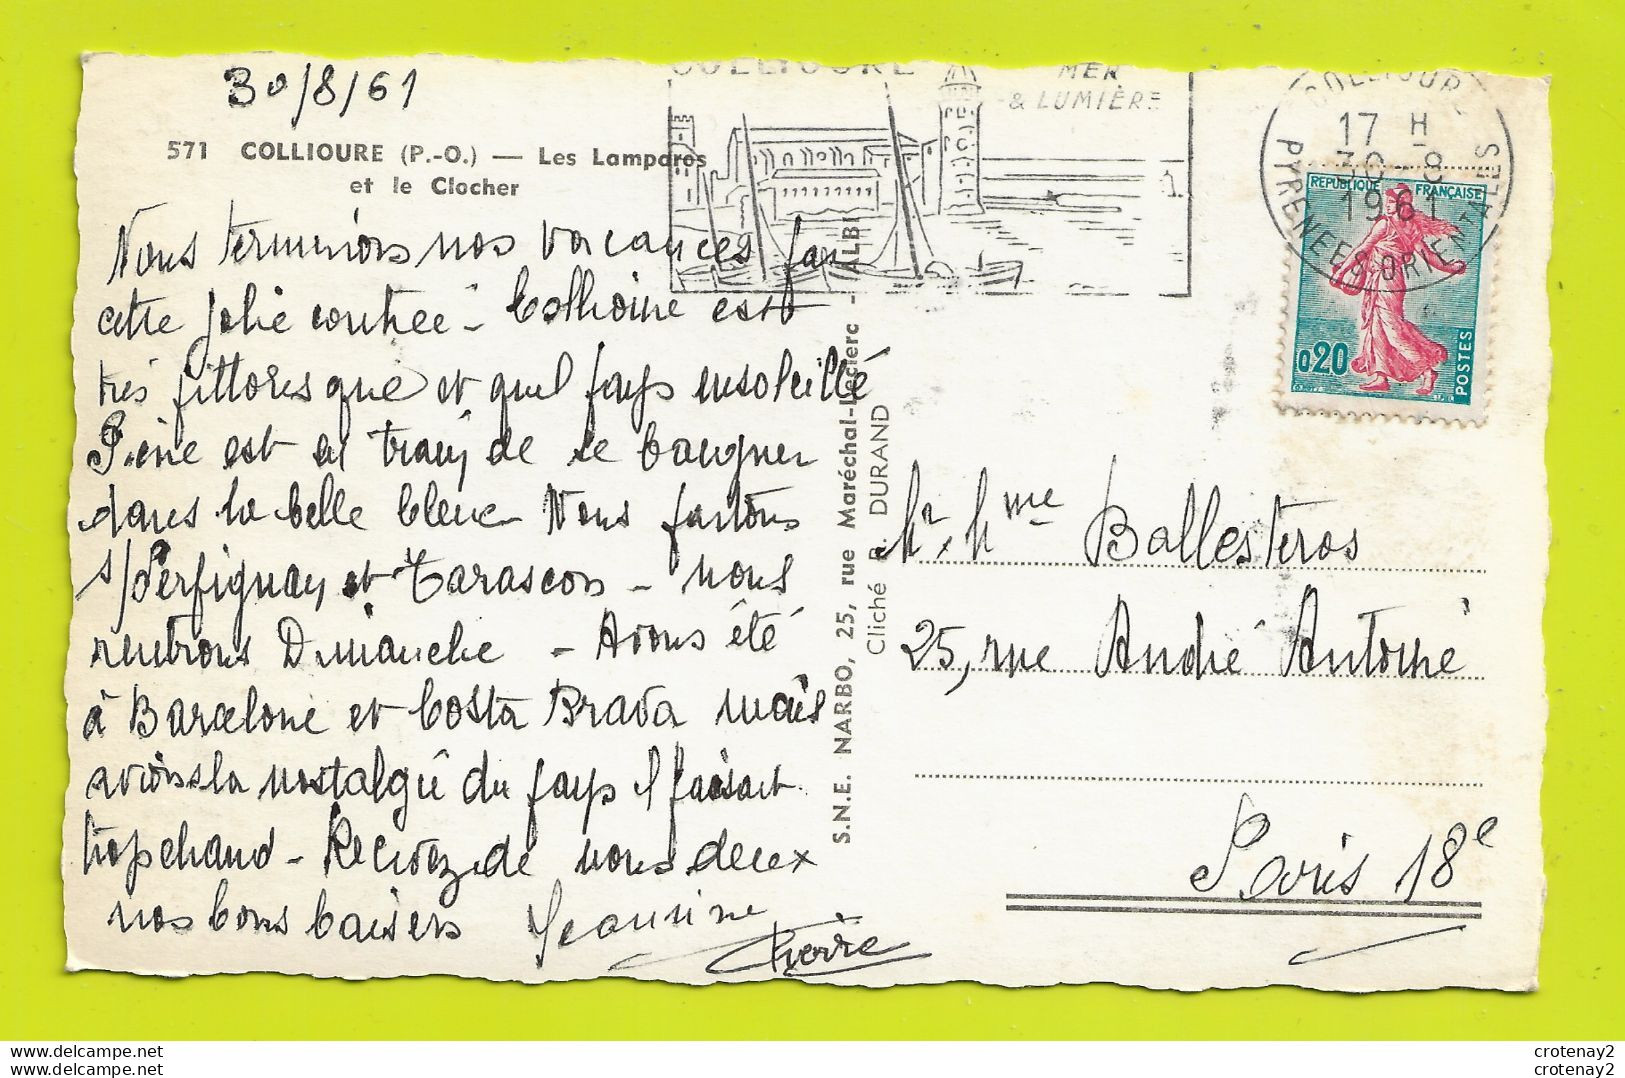 30/8/61
571 COLLIOURE (P.-O.) — Les Lamparos
et le Clocher
COLLIOURE
MER
& LUMIÈRE
COLLIOURE
17 H
30-8
1961
PYRENEES-ORIENTALES
REPUBLIQUE FRANÇAISE
0,20
POSTES
Nous terminons nos vacances par
cette jolie contrée - Collioure est
très pittoresque et quel pays ensoleillé
Pierre est en train de se baigner
dans la belle bleue Nous partons
s/Perpignan et Tarascon - nous
rentrons Dimanche - Avons été
à Barcelone et Costa Brava mais
avions la nostalgie du pays il faisait
trop chaud - Recevez de nous deux
nos bons baisers Jeannine
Pierre
S.N.E. NARBO, 25, rue Maréchal-Leclerc - ALBI
Cliché R. DURAND
Mr, Mme Ballesteros
25, rue André Antoine
Paris 18e
crotenay2
crotenay2